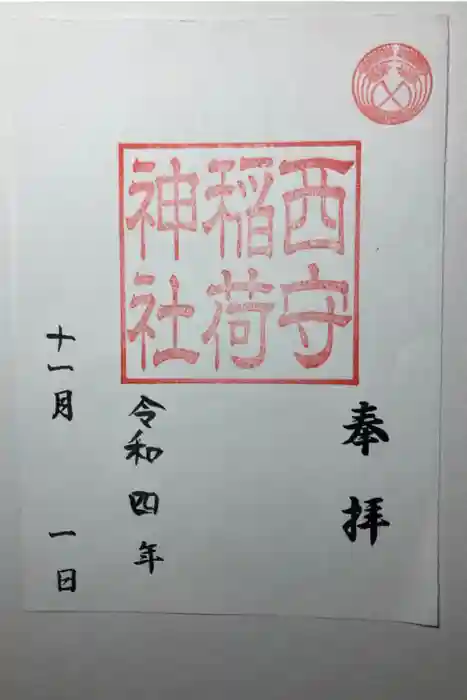 奉拝
西守
稲荷
神社
令和四年
十一月一日